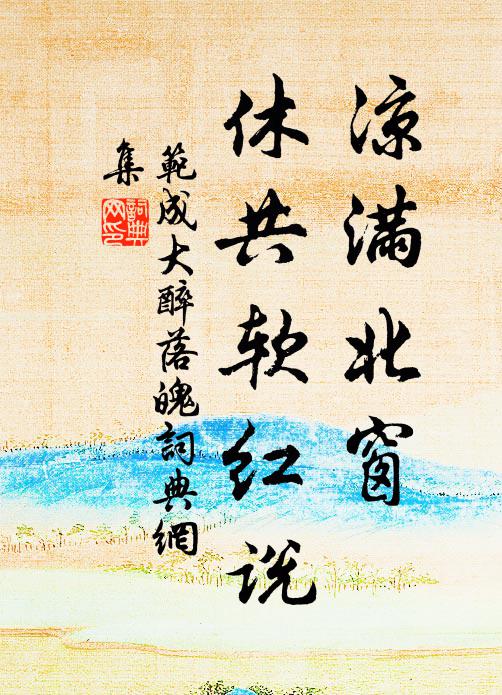 凉满北窗
休共软红说
範成大醉落魄詞典網
集
詞典网印